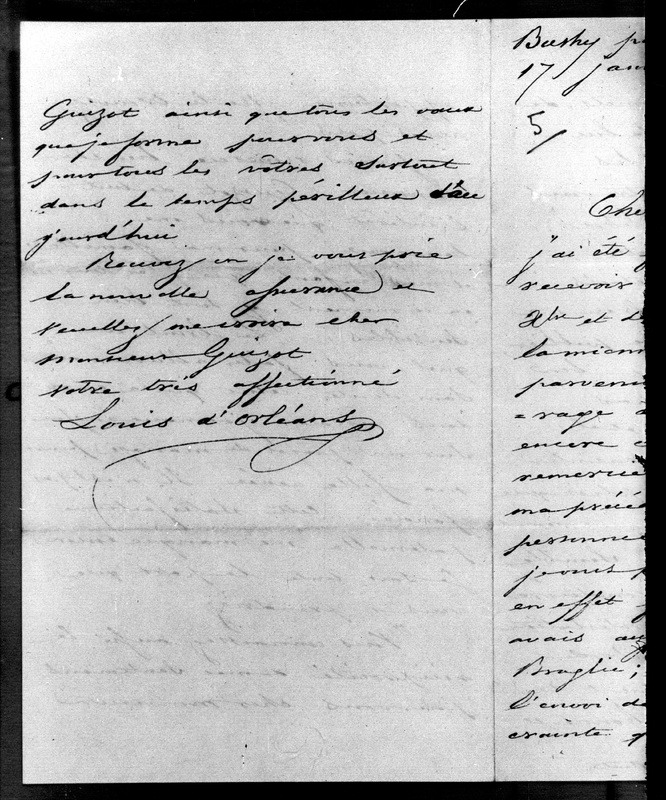 Guizot ainsi que tous les vœux
que je forme pour vous et
pour tous les vôtres surtout
dans le temps périlleux d'au
jourd'hui
Recevez en je vous prie
la nouvelle assurance et
veuillez me croire cher
monsieur Guizot
votre très affectionné
Louis d'Orléans
Bushy
17 jan
5
Che
j'ai été
recevoir
Xbre et d
la mienn
parveni
=rage
encore
remercie
ma précé
personne
je vous p
en effet
avais au
Broglie;
l'envoi de
crainte q